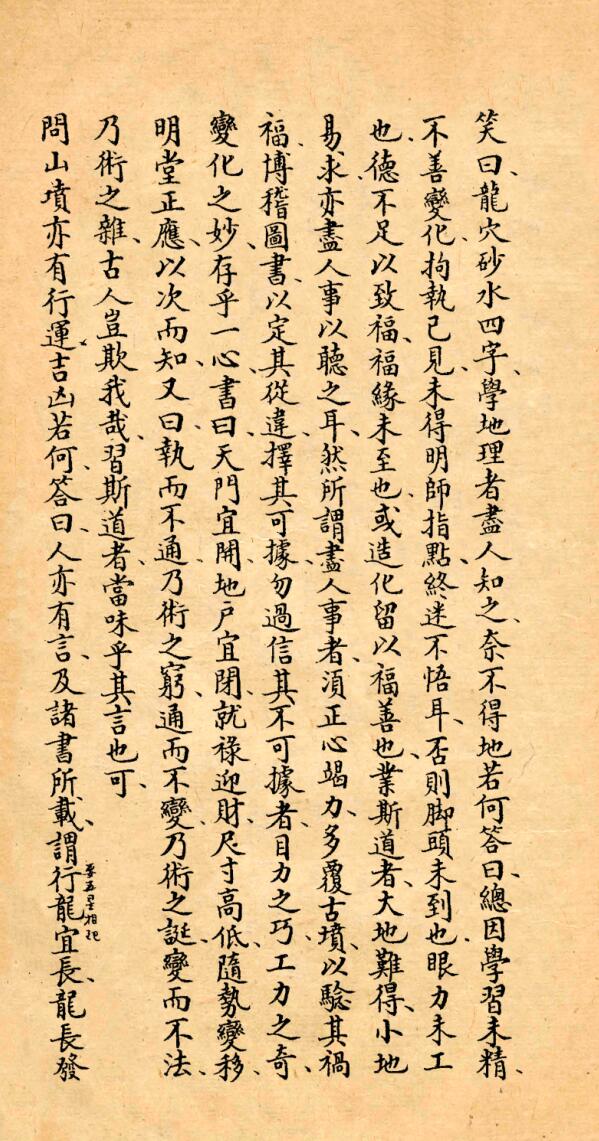 笑曰、龍穴砂水四字、學地理者盡人知之、奈不得地若何答曰、總因學習未精、
不善變化、拘執己見、未得明師指點、終迷不悟耳、否則脚頭未到也、眼力未工
也、德不足以致福、福緣未至也、或造化留以福善也、業斯道者、大地難得、小地
易求、亦盡人事以聽之耳、然所謂盡人事者、須正心竭力、多覆古墳、以驗其禍
福、博稽圖書、以定其從違、擇其可據、勿過信其不可據者、目力之巧、工力之奇、
變化之妙、存乎一心、書曰天門宜開、地戶宜閉、就祿迎財、尺寸高低、隨勢變移、
明堂正應、以次而知、又曰執而不通、乃術之窮、通而不變、乃術之誕、變而不法、
乃術之雜、古人豈欺我哉、習斯道者、當味乎其言也可、
問山墳亦有行運吉凶若何、答曰、人亦有言、及諸書所載、謂行龍宜長、龍長發
要五星相